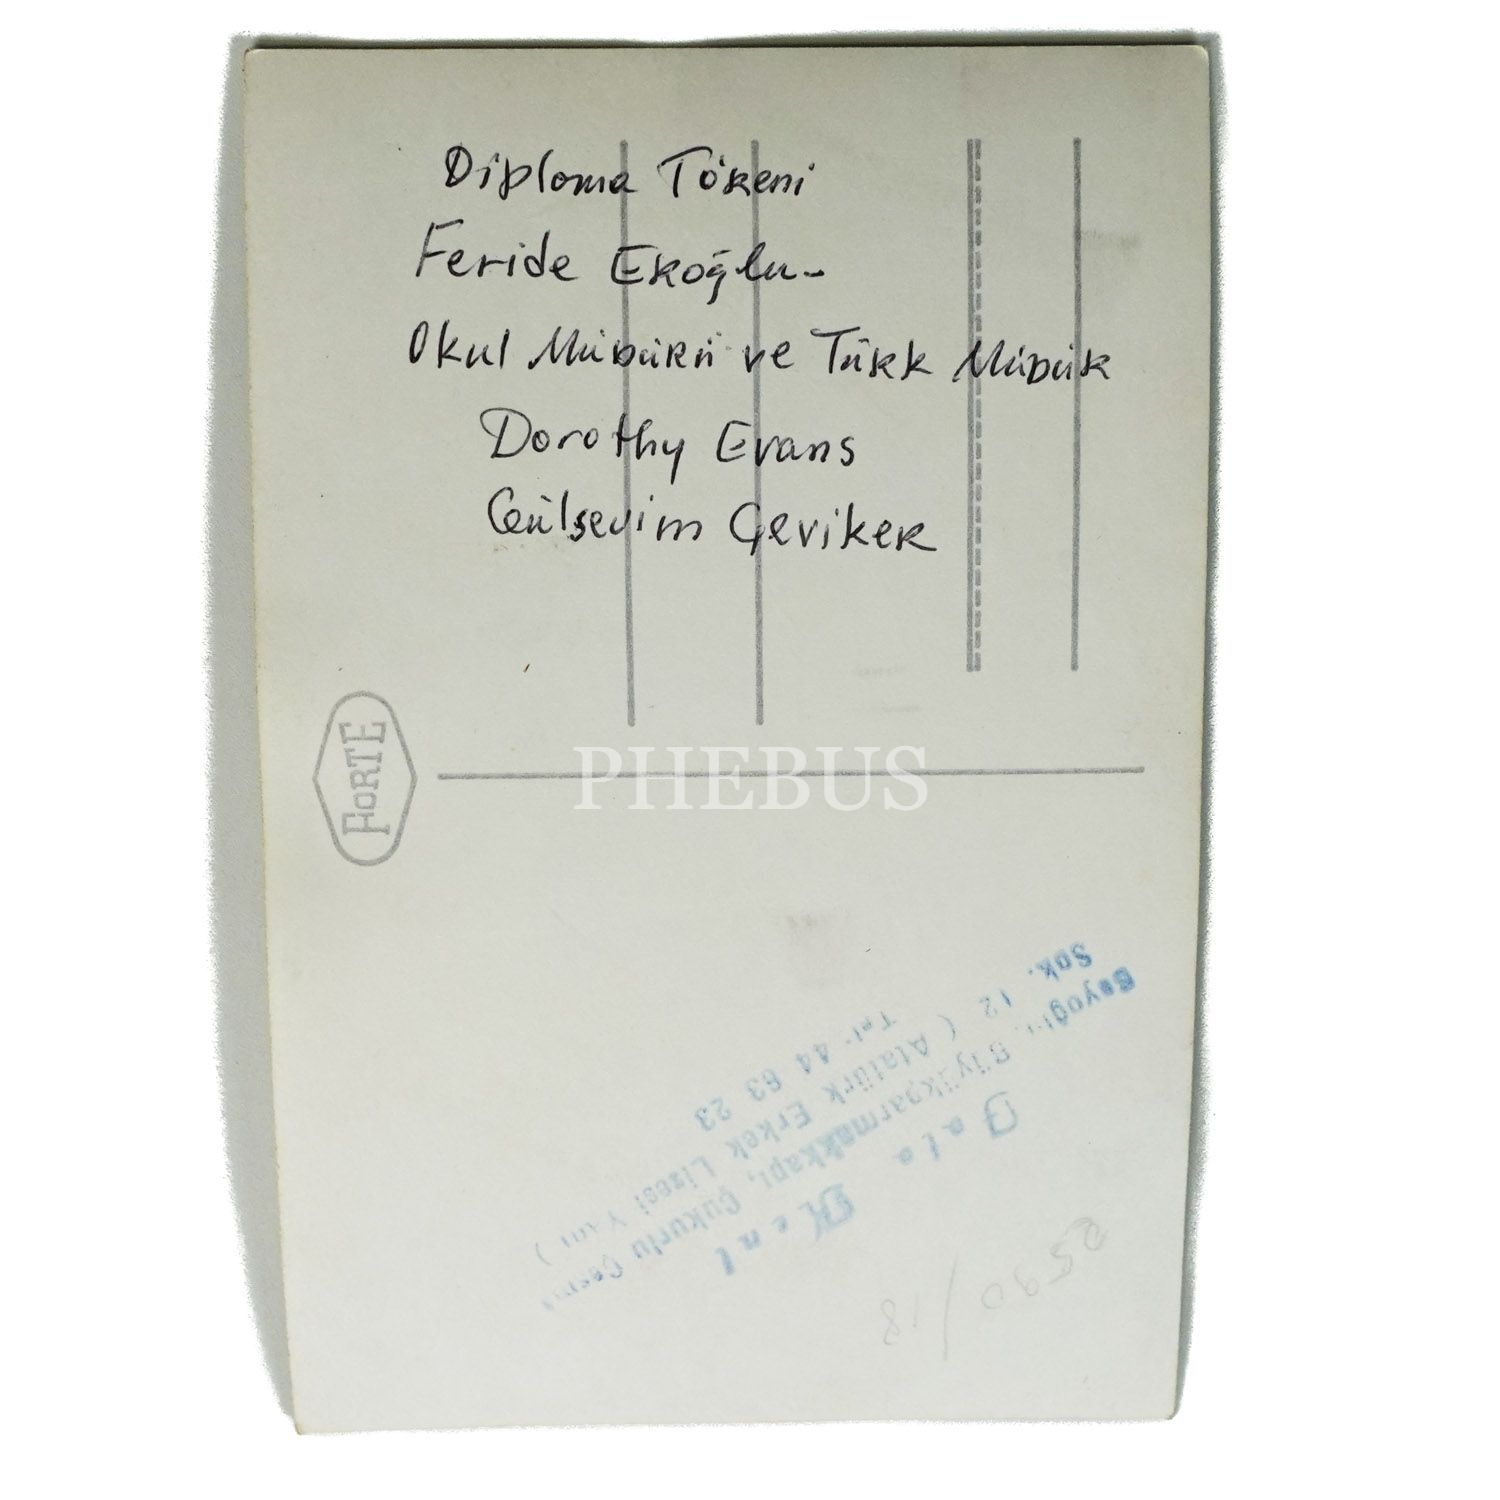 Diploma Töreni
Feride Ekoğlu-
Okul Müdürü ve Türk Müdür
Dorothy Evans
Gülsevim Çeviker
FORTE
PHEBUS
Foto Kent
Büyükparmakkapı, Çukurlu
Sok. 12 ( Atatürk Erkek Lisesi
Tel: 44 63 23
2590/18